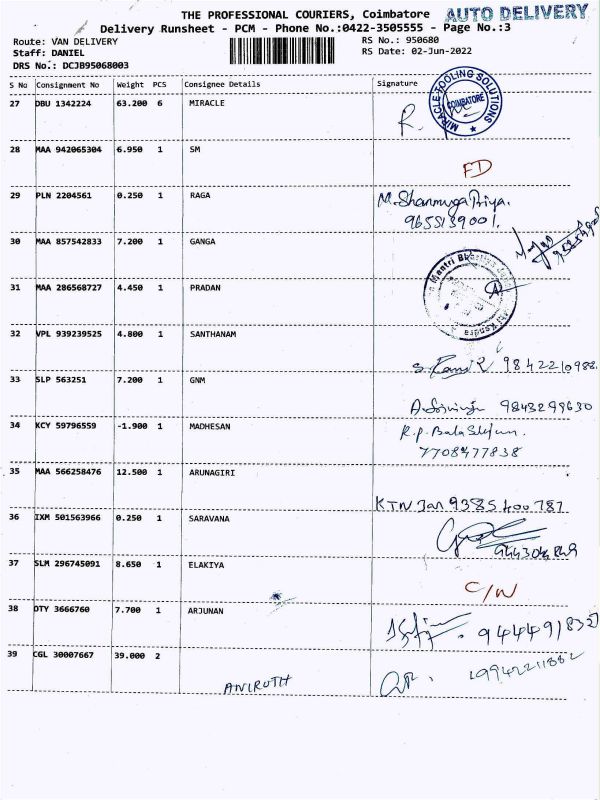 THE PROFESSIONAL COURIERS, Coimbatore AUTO DELIVERY
Delivery Runsheet - PCM - Phone No.:0422-3505555 - Page No.:3
Route: VAN DELIVERY RS No.: 950680
Staff: DANIEL RS Date: 02-Jun-2022
DRS No.: DCJB95068003
S No Consignment No Weight PCS Consignee Details Signature
27 DBU 1342224 63.200 6 MIRACLE R.
MIRACLE TOOLING SOLUTIONS COIMBATORE
28 MAA 942065304 6.950 1 SM FD
29 PLN 2204561 0.250 1 RAGA M. Shanmuga Priya.
9655139001.
30 MAA 857542833 7.200 1 GANGA
31 MAA 286568727 4.450 1 PRADAN
32 VPL 939239525 4.800 1 SANTHANAM
33 SLP 563251 7.200 1 GNM
9843299630
34 KCY 59796559 -1.900 1 MADHESAN R.P.
7708477838
35 MAA 566258476 12.500 1 ARUNAGIRI
KTN Jan 9385400787
36 IXM 501563966 0.250 1 SARAVANA
37 SLM 296745091 8.650 1 ELAKIYA C/N
38 OTY 3666760 7.700 1 ARJUNAN
39 CGL 30007667 39.000 2
ANIRUTH